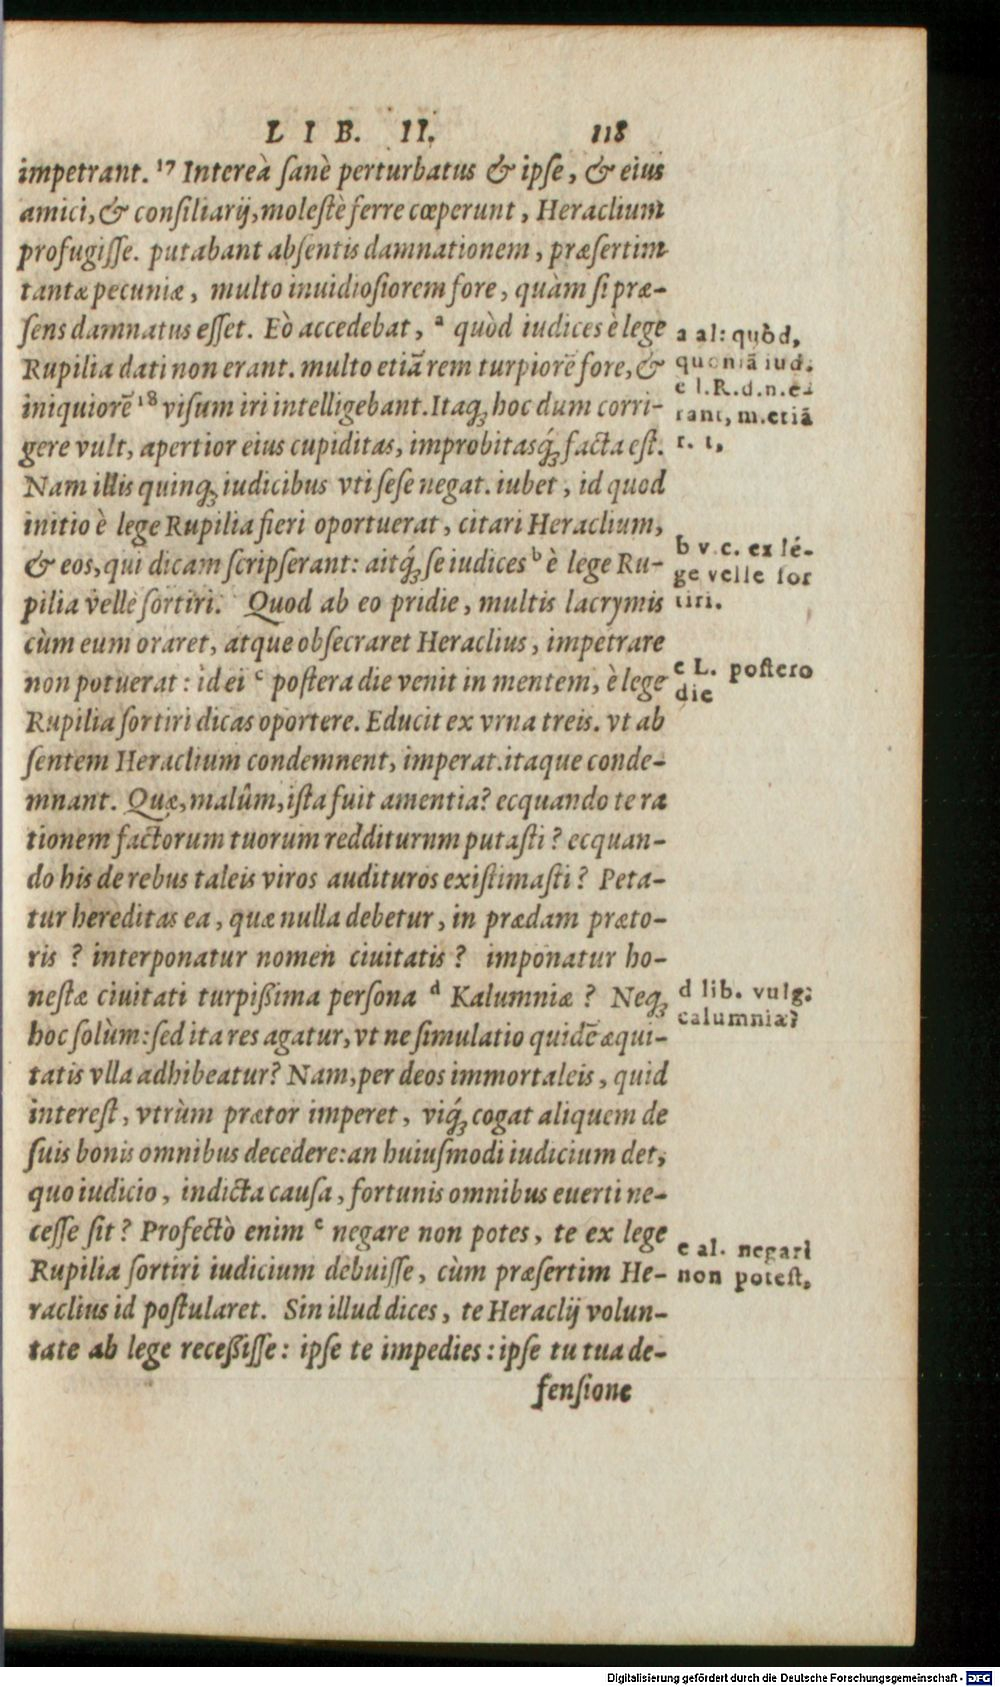 LIB. II. 118
impetrant. 17 Intereà ſanè perturbatus & ipſe, & eius
amici, & conſiliarij, moleſtè ferre cœperunt, Heraclium
profugiſſe. putabant abſentis damnationem, præſertim
tantæ pecuniæ, multo inuidioſiorem fore, quàm ſi præ-
ſens damnatus eſſet. Eò accedebat, a quòd iudices è lege
Rupilia dati non erant. multo etiã rem turpiorẽ fore, &
iniquiorẽ 18 viſum iri intelligebant. Itaq; hoc dum corri-
gere vult, apertior eius cupiditas, improbitasq́; facta eſt.
Nam illis quinq; iudicibus vti ſeſe negat. iubet, id quod
initio è lege Rupilia fieri oportuerat, citari Heraclium,
& eos, qui dicam ſcripſerant: aitq́; ſe iudices b è lege Ru-
pilia velle ſortiri. Quod ab eo pridie, multis lacrymis
cùm eum oraret, atque obſecraret Heraclius, impetrare
non potuerat: id ei c poſtera die venit in mentem, è lege
Rupilia ſortiri dicas oportere. Educit ex vrna treis. vt ab
ſentem Heraclium condemnent, imperat. itaque conde-
mnant. Quæ, malûm, iſta fuit amentia? ecquando te ra
tionem factorum tuorum redditurnm putaſti? ecquan-
do his de rebus taleis viros audituros exiſtimaſti? Peta-
tur hereditas ea, quæ nulla debetur, in prædam præto-
ris? interponatur nomen ciuitatis? imponatur ho-
neſtæ ciuitati turpißima perſona d Kalumniæ? Neq;
hoc ſolùm: ſed ita res agatur, vt ne ſimulatio quidẽ æqui-
tatis vlla adhibeatur? Nam, per deos immortaleis, quid
intereſt, vtrùm prætor imperet, viq́; cogat aliquem de
ſuis bonis omnibus decedere: an huiuſmodi iudicium det,
quo iudicio, indicta cauſa, fortunis omnibus euerti ne-
ceſſe ſit? Profectò enim e negare non potes, te ex lege
Rupilia ſortiri iudicium debuiſſe, cùm præſertim He-
raclius id poſtularet. Sin illud dices, te Heraclij volun-
tate ab lege receßiſſe: ipſe te impedies: ipſe tu tua de-
fenſione
a al: quòd,
quoniã iud.
e l. R. d. n. e-
rant, m. etiã
r. t,
b v. c. ex lé-
ge velle ſor
tiri.
c L. poſtero
die
d lib. vulg:
calumniæ?
e al. negari
non poteſt,
Digitalisierung gefördert durch die Deutsche Forschungsgemeinschaft - DFG